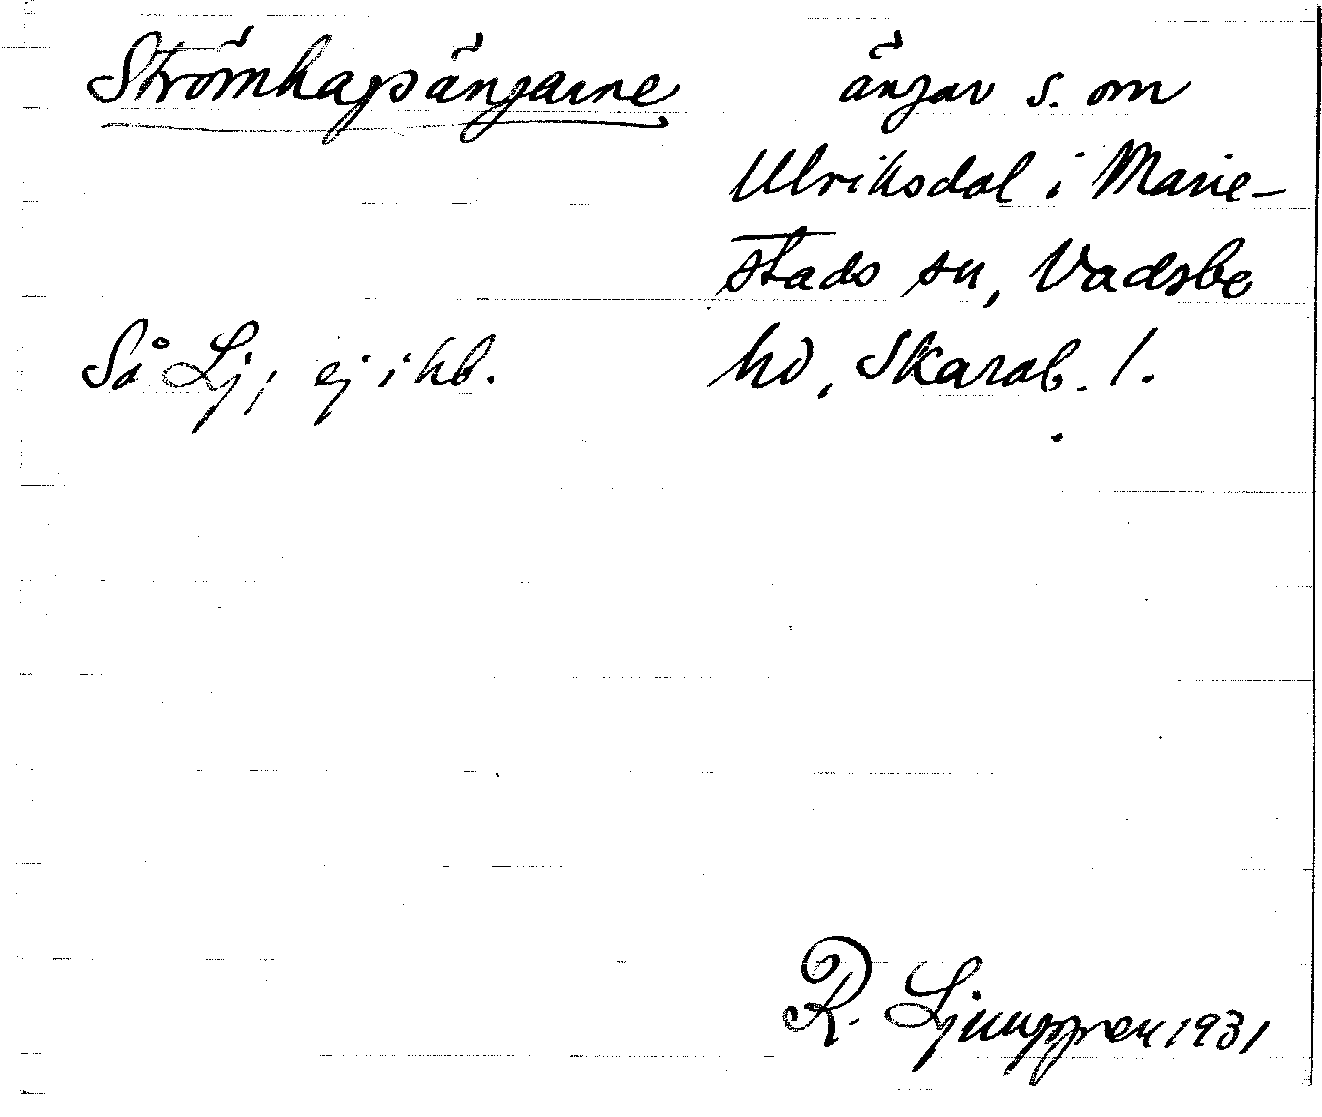 Strömhagsängarne
ängar s. om
Ulriksdal i Marie-
stads sn, Vadsbo
hd, Skarab. l.
Så Lj, ej i hb.
R. Ljunggren 1931